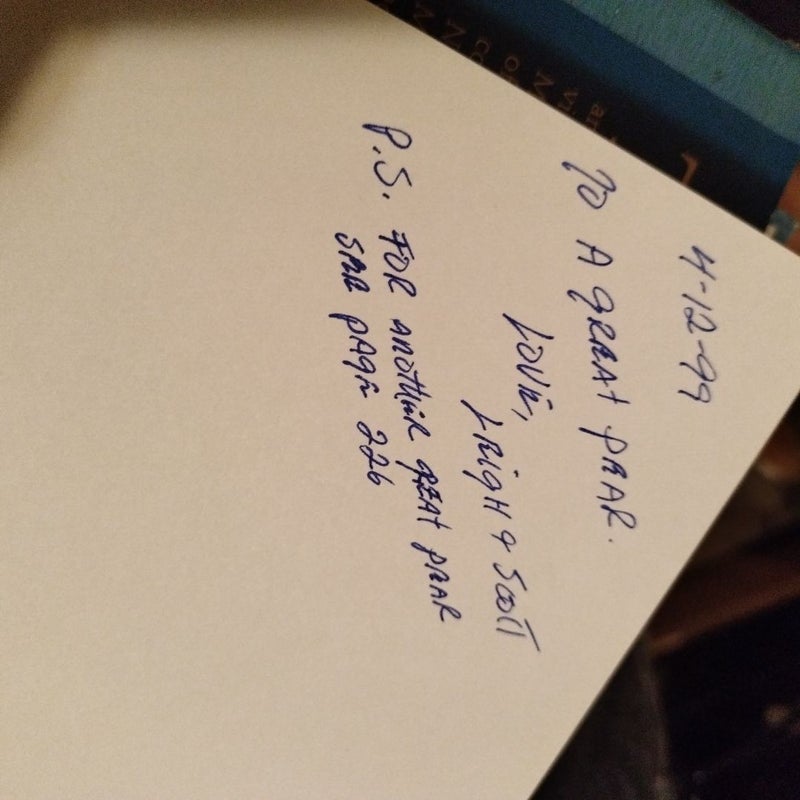 4-12-99
To A gREAt pEAR.
LOVE,
LEigH & Scott
P.S. FOR anotHER gREAt pEAR
SEE pAgE 226